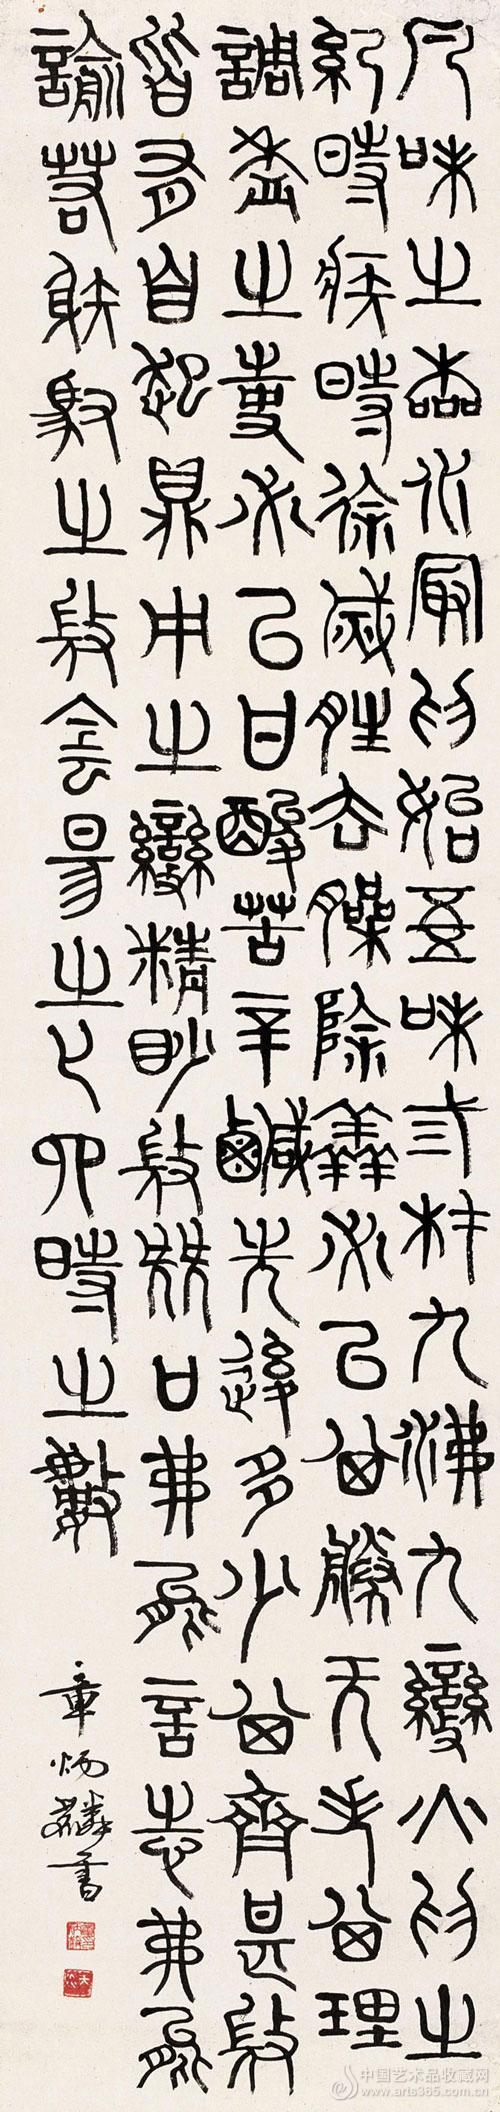 凡味之本水最為始五味三材九沸九變火為之
紀時疾時徐滅胜去臊除羴必以其勝无失其理
調和之事必以甘酸苦辛鹹先後多少其齊甚微
皆有自起鼎中之變精妙微纖口弗能言志弗能
諭若射御之微陰陽之化四時之數
章炳麟書
太炎
中国艺术品收藏网
www.arts365.com.cn